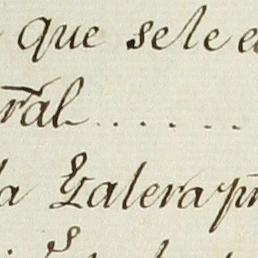 que se le e
ral......
la Galera pr